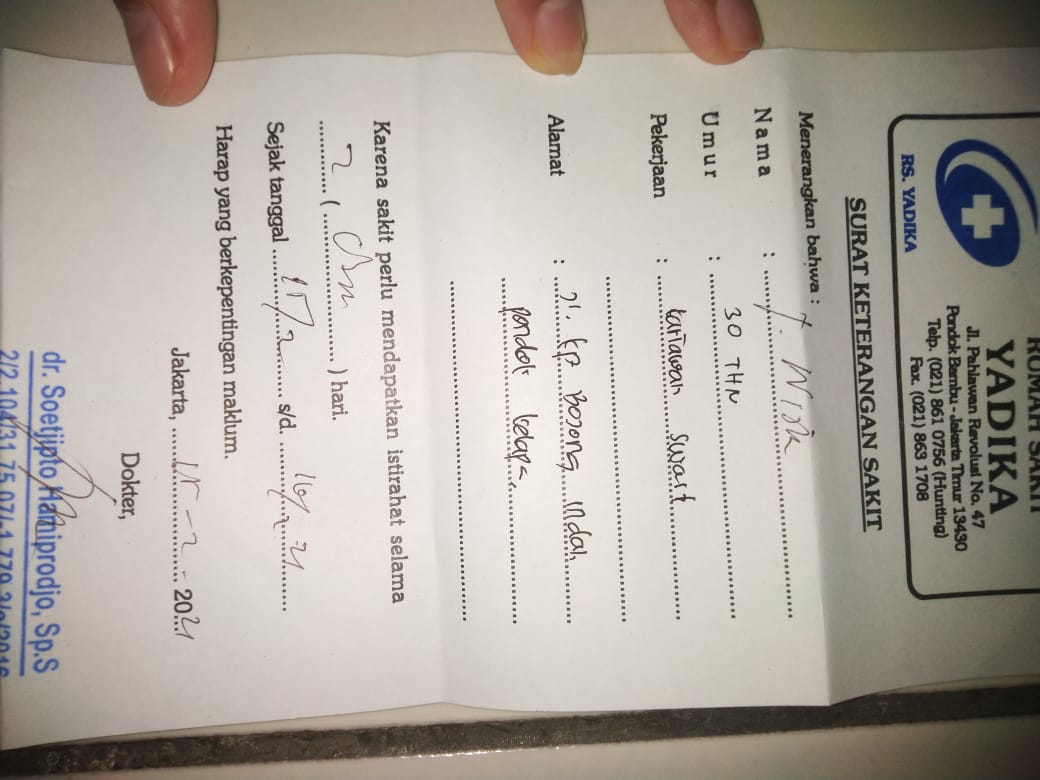 RUMAH SAKIT
YADIKA
Jl. Pahlawan Revolusi No. 47
Pondok Bambu - Jakarta Timur 13430
Telp. (021) 861 0756 (Hunting)
Fax. (021) 863 1708
RS. YADIKA
SURAT KETERANGAN SAKIT
Menerangkan bahwa :
Nama :
Umur : 30 THN
Pekerjaan : karyawan swast
Alamat : Jl. kp Bojong indah
pondok kelapa
Karena sakit perlu mendapatkan istirahat selama
2 ( ) hari.
Sejak tanggal 15/2 s/d. 16/2-21
Harap yang berkepentingan maklum.
Jakarta, 15 - 2 - 2021
Dokter,
dr. Soetjipto Hamiprodjo, Sp.S